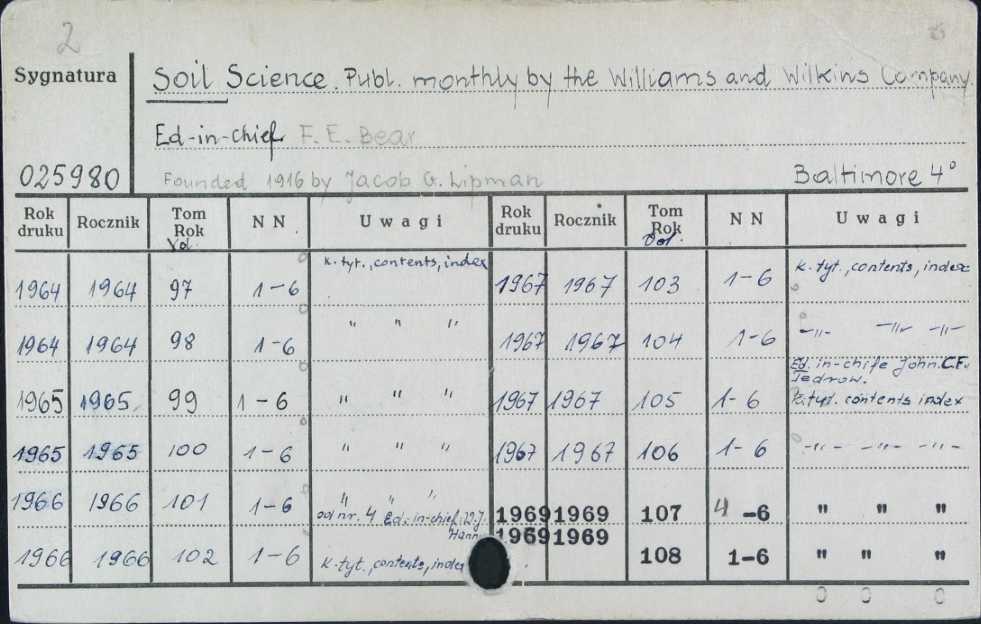 2
Sygnatura
Soil Science. Publ. monthly by the Williams and Wilkins Company.
Ed-in-chief F. E. Bear
025980 Founded 1916 by Jacob G. Lipman Baltimore 4°
Rok druku Rocznik Tom Rok Vol. N N Uwagi Rok druku Rocznik Tom Rok Vol. N N Uwagi
1964 1964 97 1-6 k. tyt., contents, index 1967 1967 103 1-6 k. tyt., contents, index
1964 1964 98 1-6 " " " 1967 1967 104 1-6 -"- -"- -"-
Ed. in-chife John. C.F. Tedrow.
1965 1965 99 1-6 " " " 1967 1967 105 1-6 k. tyt. contents index
1965 1965 100 1-6 " " " 1967 1967 106 1-6 -"- -"- -"-
1966 1966 101 1-6 " " " od nr. 4 Ed.-in-chief. Hann 1969 1969 107 4-6 " " "
1969 1969
1966 1966 102 1-6 k. tyt., contents, index 108 1-6 " " "